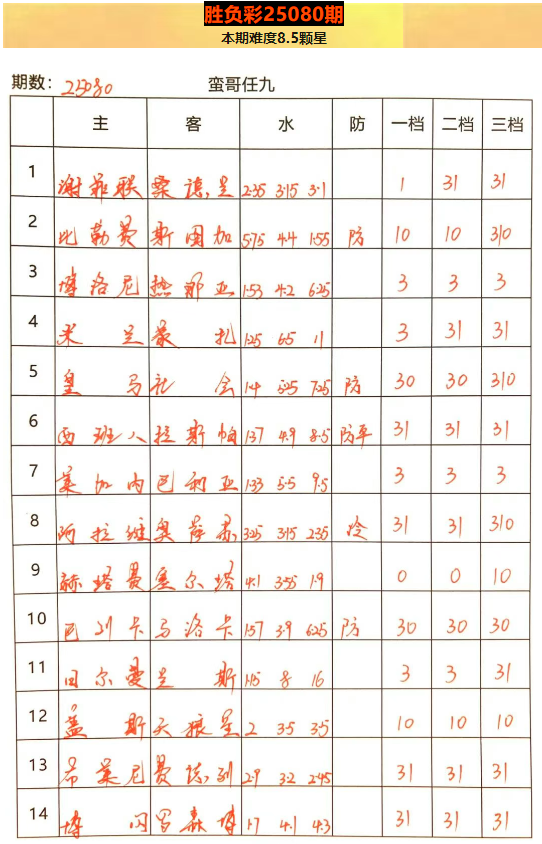 胜负彩25080期
本期难度8.5颗星
期数: 25080 蛮哥任九
主 客 水 防 一档 二档 三档
1 谢菲联 桑德兰 2.35 3.15 3.1 1 31 31
2 比勒费 斯图加 5.75 4.4 1.55 防 10 10 310
3 博洛尼 热那亚 1.53 4.2 6.25 3 3 3
4 米兰 蒙扎 1.25 6.5 11 3 31 31
5 皇马 社会 1.4 5.25 7.25 防 30 30 310
6 西班人 拉斯帕 1.37 4.9 8.5 防平 31 31 31
7 莱加内 巴利亚 1.33 5.5 9.5 3 3 3
8 阿拉维 奥萨苏 3.25 3.15 2.35 冷 31 31 310
9 赫塔费 塞尔塔 4.1 3.55 1.9 0 0 10
10 巴列卡 马洛卡 1.57 3.9 6.25 防 30 30 30
11 日尔曼 兰斯 1.15 8 16 3 3 31
12 盖斯 天狼星 2 3.5 3.5 10 10 10
13 希莱尼 费德列 2.9 3.2 2.45 31 31 31
14 博闪 罗森博 1.7 4.1 4.3 31 31 31